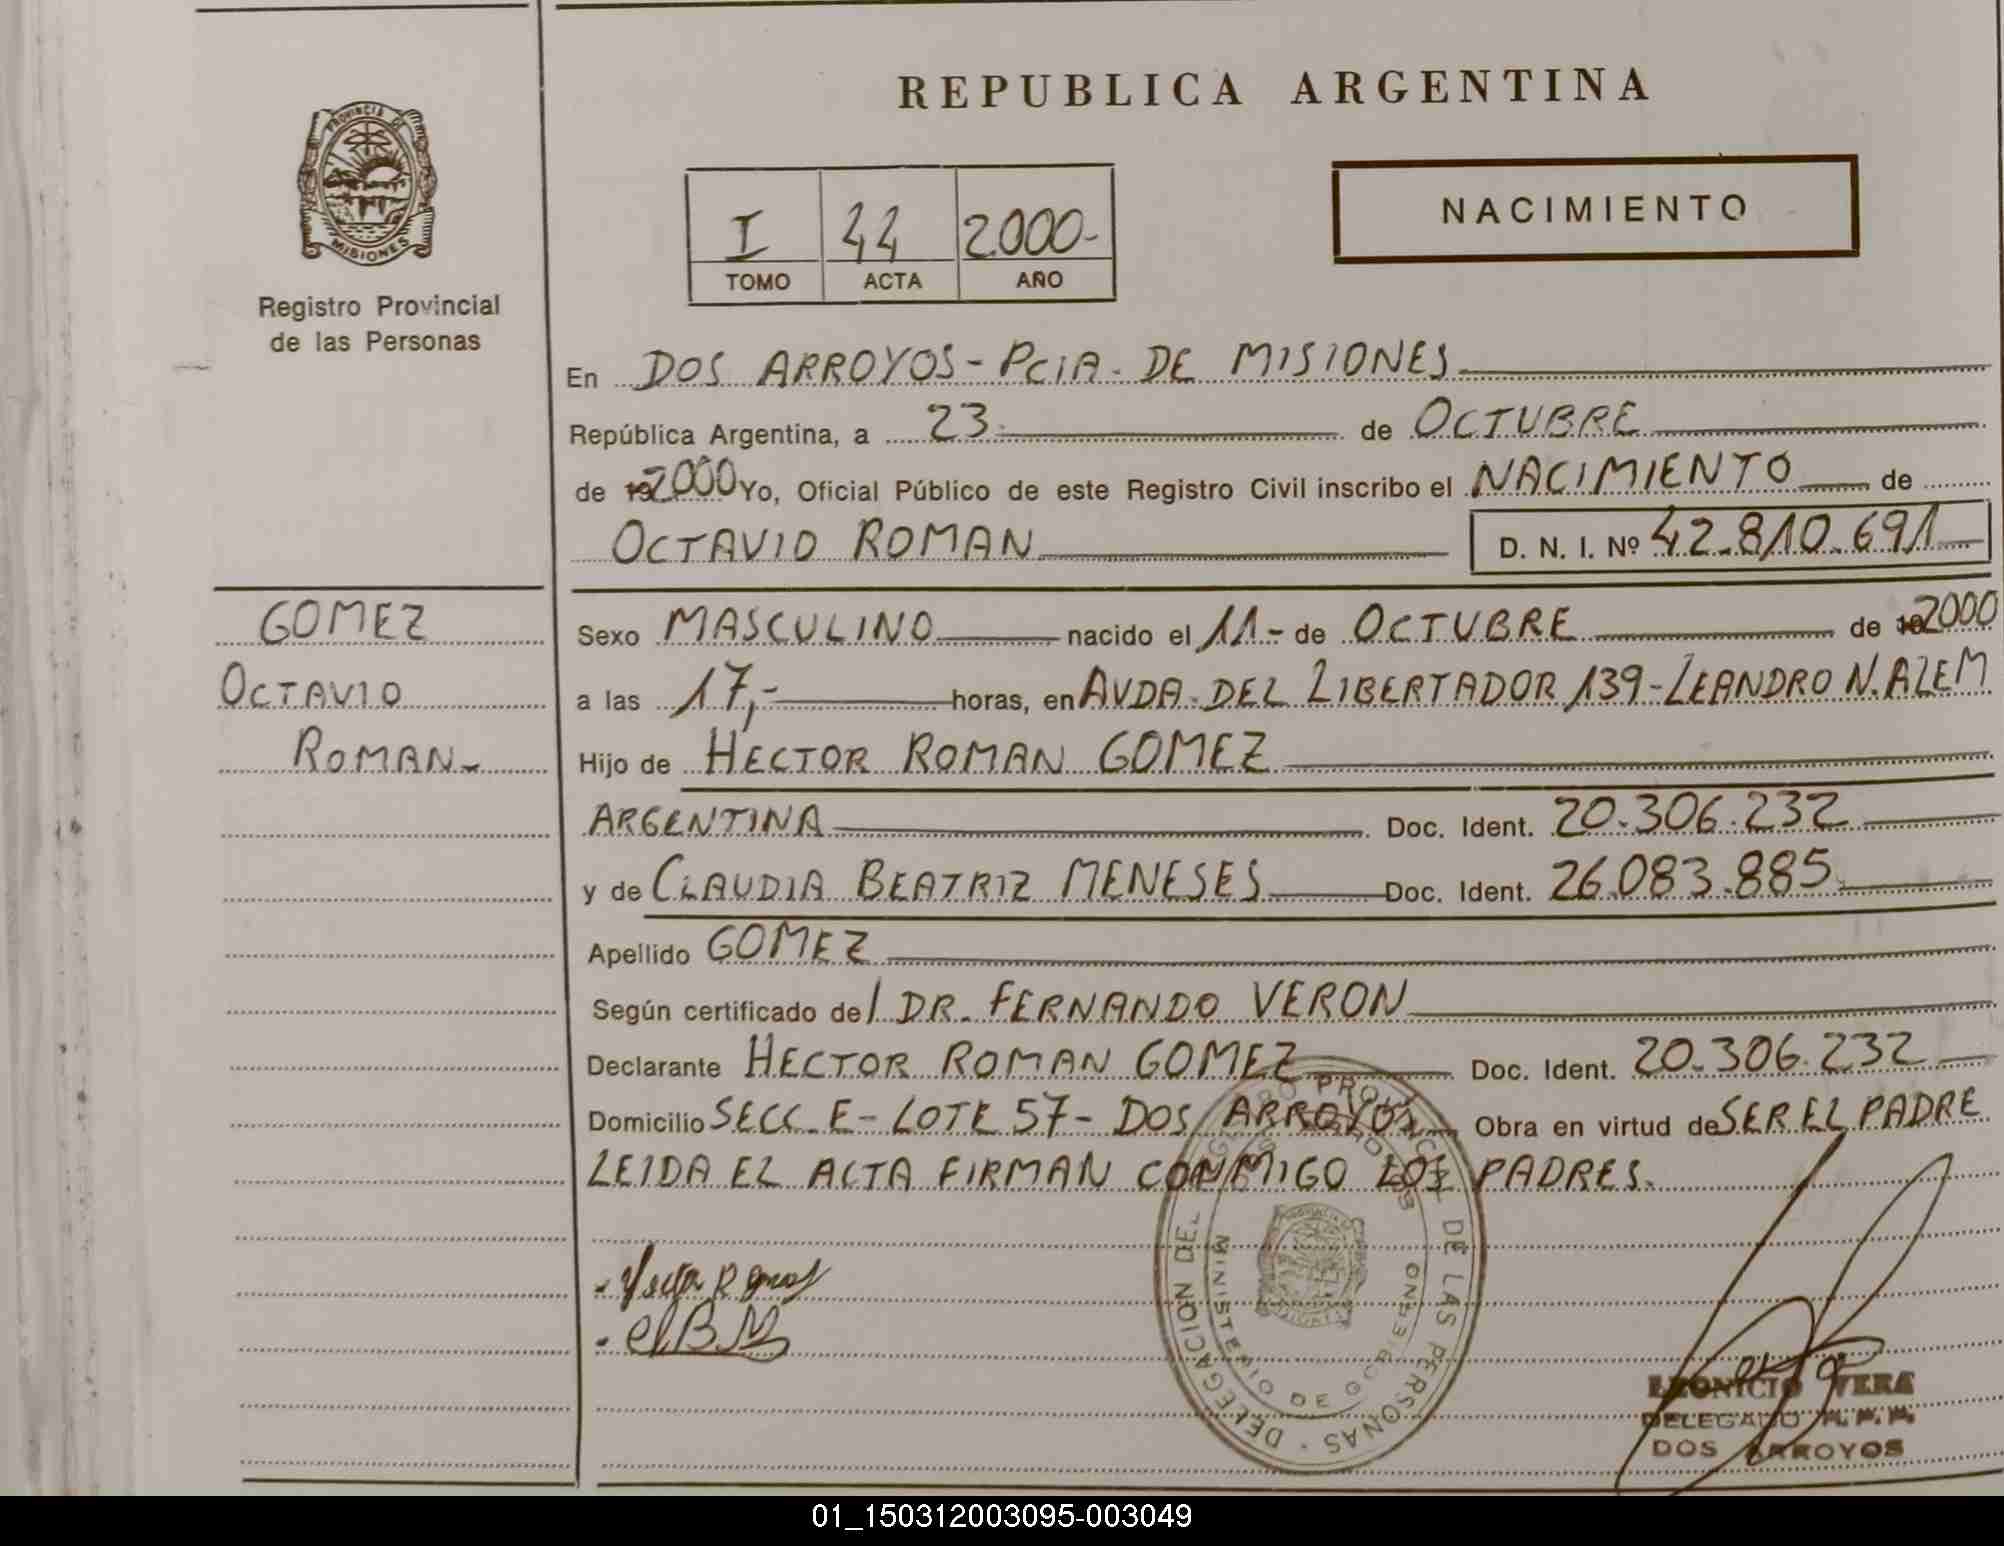 REPUBLICA ARGENTINA
PROVINCIA DE
MISIONES
Registro Provincial
de las Personas
NACIMIENTO
I 44 2000-
TOMO ACTA AÑO
En DOS ARROYOS - PCIA. DE MISIONES
República Argentina, a 23 de OCTUBRE
de 192000 Yo, Oficial Público de este Registro Civil inscribo el NACIMIENTO de
OCTAVIO ROMAN D. N. I. Nº 42.810.691
GOMEZ
OCTAVIO
ROMAN-
Sexo MASCULINO nacido el 11- de OCTUBRE de 192000
a las 17,- horas, en AVDA. DEL LIBERTADOR 139 - LEANDRO N. ALEM
Hijo de HECTOR ROMAN GOMEZ
ARGENTINA Doc. Ident. 20.306.232
y de CLAUDIA BEATRIZ MENESES Doc. Ident. 26.083.885
Apellido GOMEZ
Según certificado del DR. FERNANDO VERON
Declarante HECTOR ROMAN GOMEZ Doc. Ident. 20.306.232
Domicilio SECC. E - LOTE 57 - DOS ARROYOS Obra en virtud de SER EL PADRE
LEIDA EL ACTA FIRMAN CONMIGO LOS PADRES.
DELEGACION DEL REGISTRO PROVINCIAL DE LAS PERSONAS
MINISTERIO DE GOBIERNO
LEONICIO VERA
DELEGADO R. P. P.
DOS ARROYOS
01_150312003095-003049